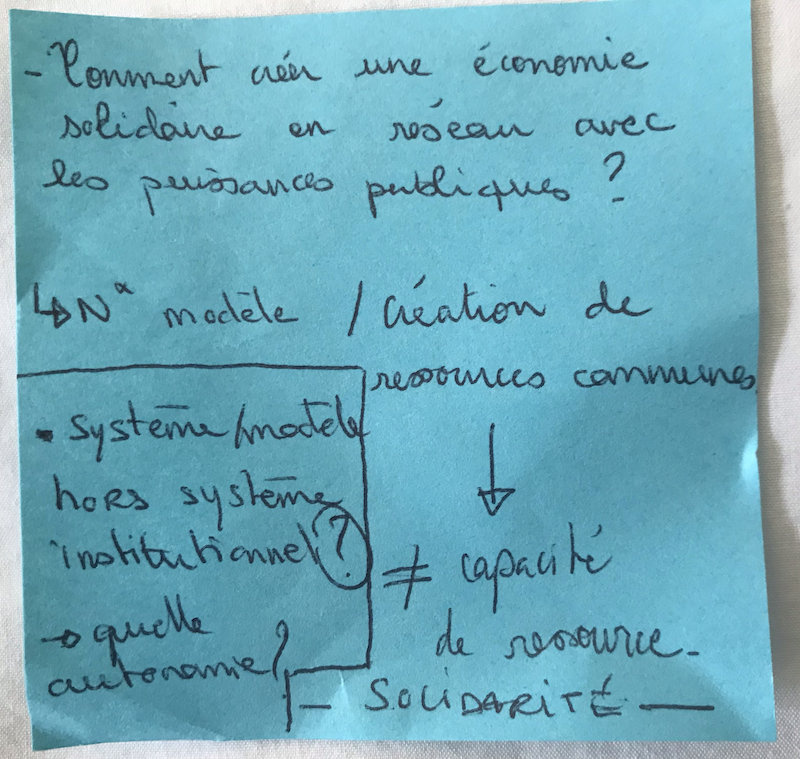 - Comment créer une économie
solidaire en réseau avec
les puissances publiques ?
↳ Nx modèle / création de
ressources communes.
• système/modèle
hors système
institutionnel ?
→ quelle
autonomie ?
↓
≠ capacité
de ressource.
— SOLIDARITÉ —